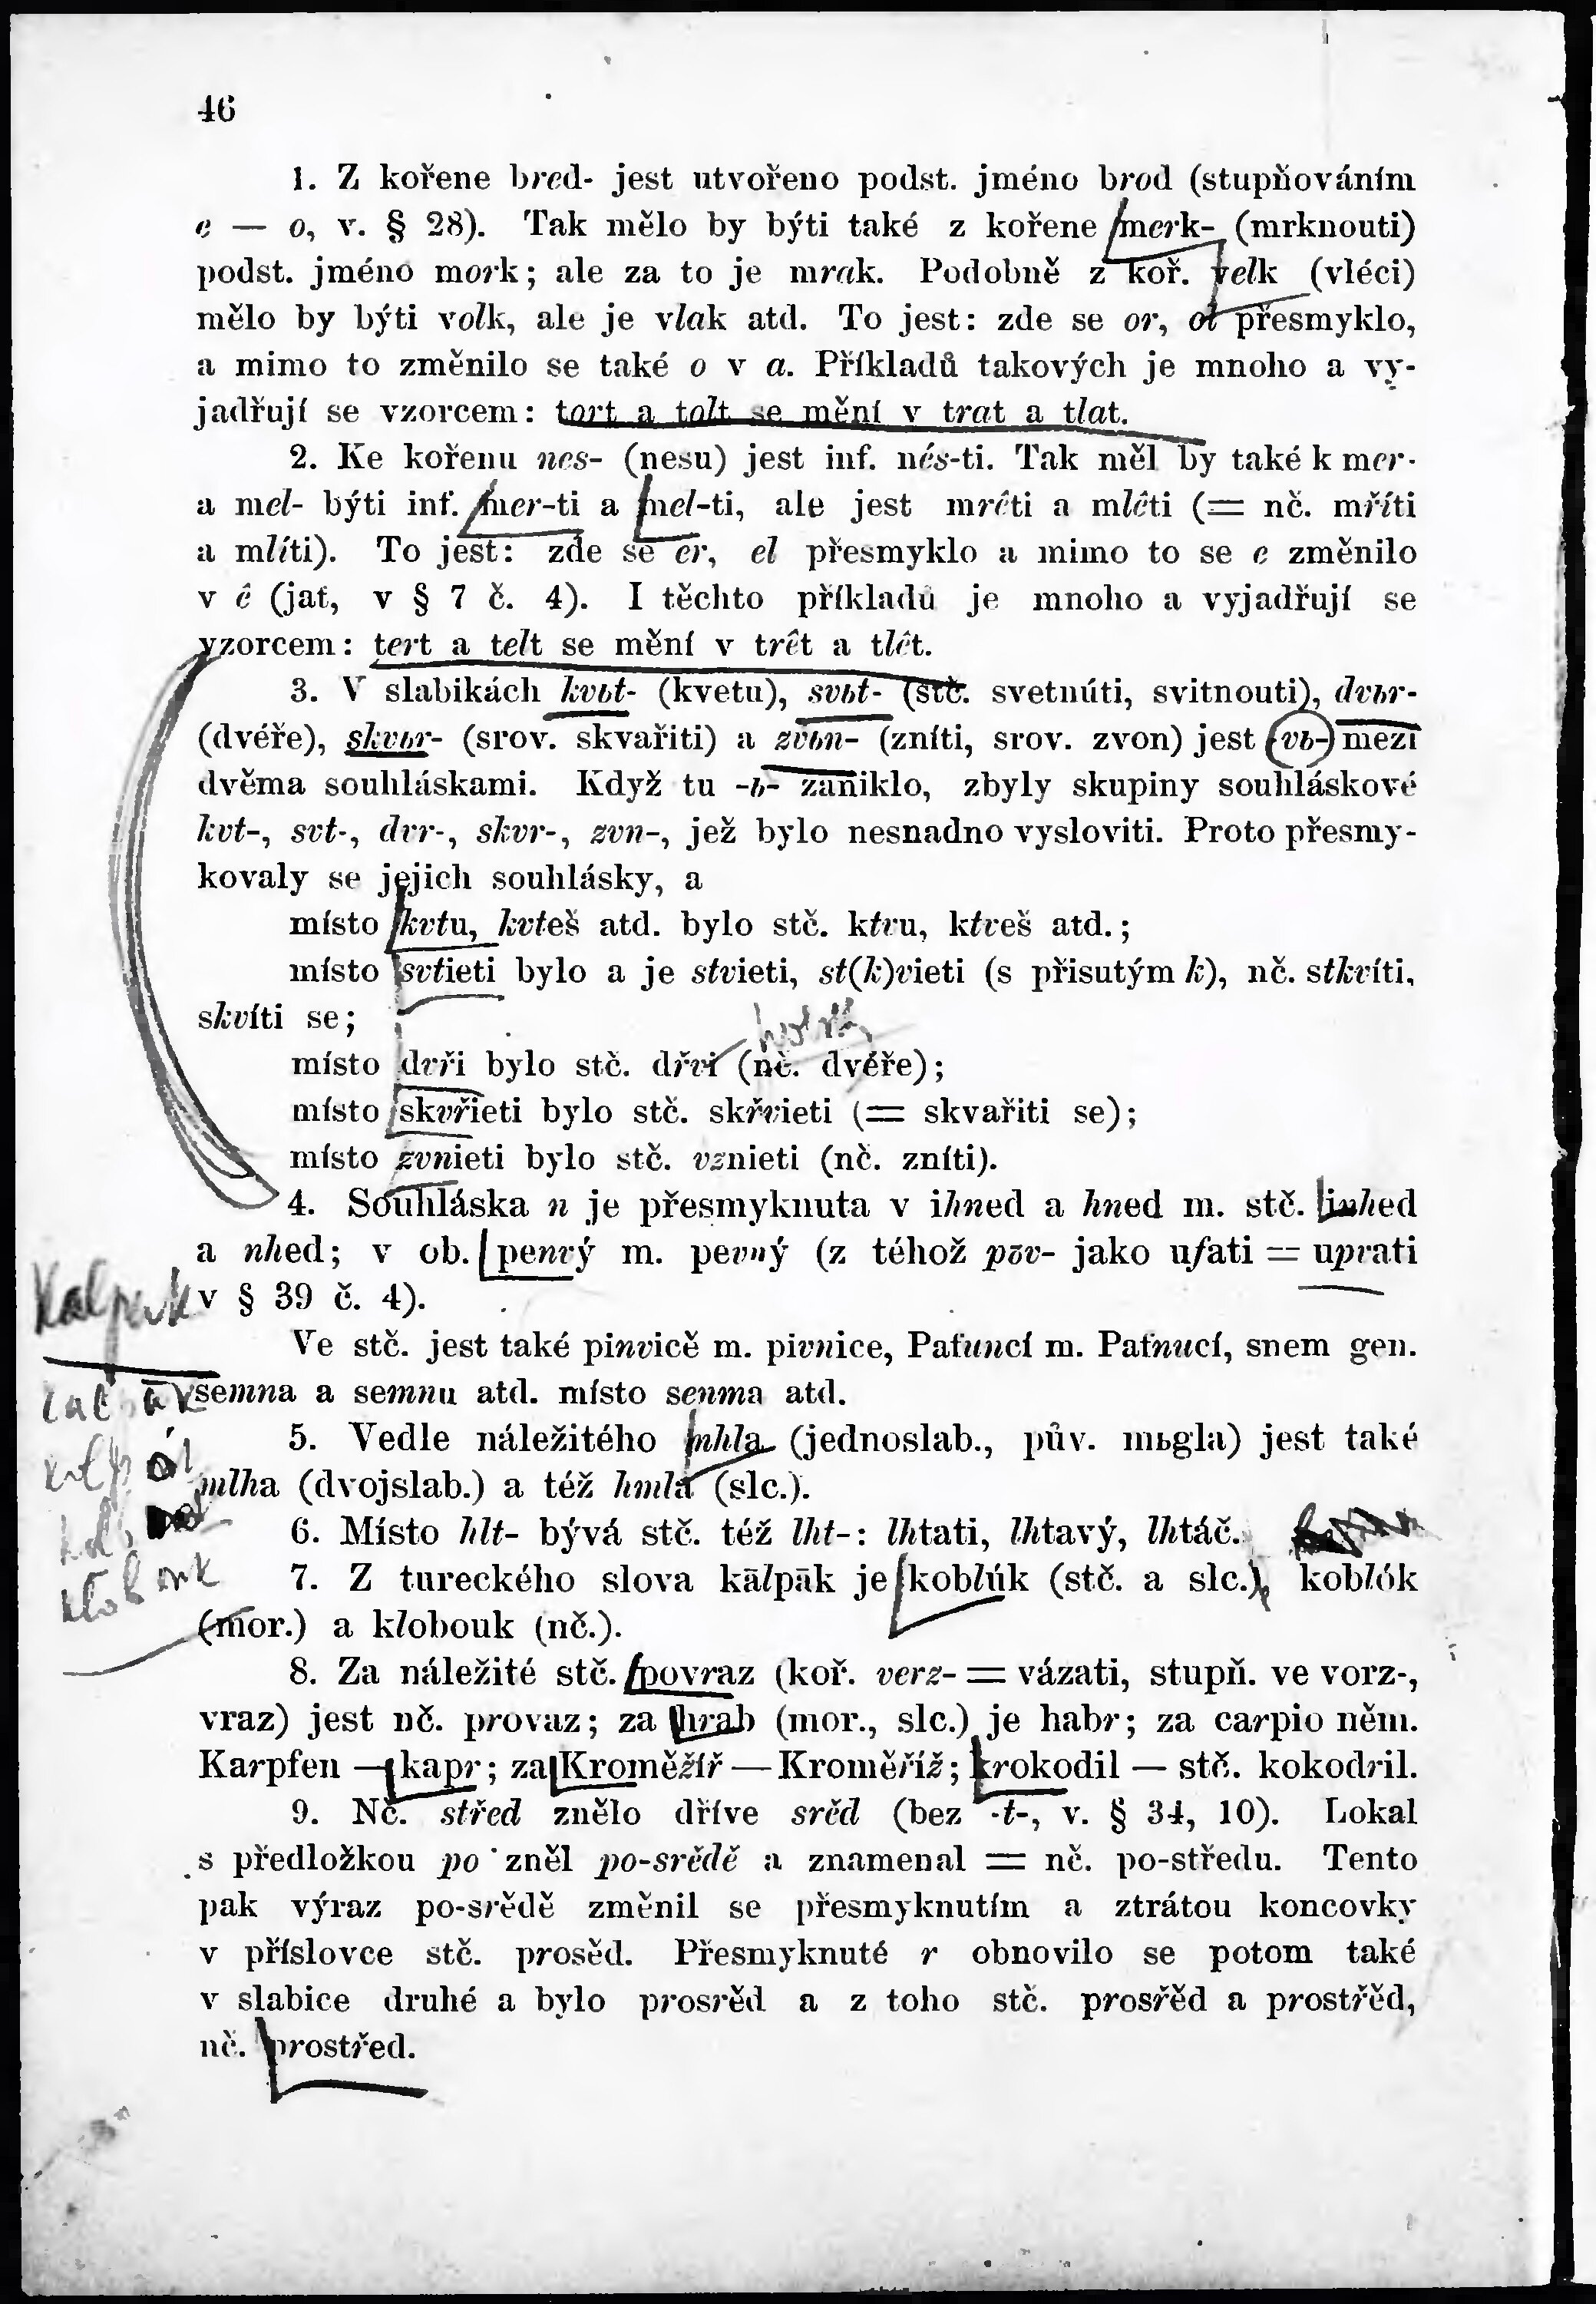 46
1. Z kořene bred- jest utvořeno podst. jméno brod (stupňováním
e — o, v. § 28). Tak mělo by býti také z kořene merk- (mrknouti)
podst. jméno mork; ale za to je mrak. Podobně z koř. velk (vléci)
mělo by býti volk, ale je vlak atd. To jest: zde se or, ol přesmyklo,
a mimo to změnilo se také o v a. Příkladů takových je mnoho a vy-
jadřují se vzorcem: tort a tolt se mění v trat a tlat.
2. Ke kořenu nes- (nesu) jest inf. nés-ti. Tak měl by také k mer-
a mel- býti inf. mer-ti a mel-ti, ale jest mrěti a mlěti (= nč. mříti
a mlíti). To jest: zde se er, el přesmyklo a mimo to se e změnilo
v ě (jať, v § 7 č. 4). I těchto příkladů je mnoho a vyjadřují se
vzorcem: tert a telt se mění v trět a tlět.
3. V slabikách kvьt- (kvetu), svьt- (stč. svetnúti, svitnouti), dvьr-
(dvéře), skvьr- (srov. skvařiti) a zvьn- (zníti, srov. zvon) jest -vь- mezi
dvěma souhláskami. Když tu -ь- zaniklo, zbyly skupiny souhláskové
kvt-, svt-, dvr-, skvr-, zvn-, jež bylo nesnadno vysloviti. Proto přesmy-
kovaly se jejich souhlásky, a
místo kvtu, kvteš atd. bylo stč. ktvu, ktveš atd.;
místo svtieti bylo a je stvieti, st(k)vieti (s přisutým k), nč. stkvíti,
skvíti se;
místo dvři bylo stč. dřvi (nč. dvéře);
místo skvřieti bylo stč. skřvieti (= skvařiti se);
místo zvnieti bylo stč. vznieti (nč. zníti).
4. Souhláska n je přesmyknuta v ihned a hned m. stč. inhed
a nhed; v ob. penvý m. pevný (z téhož pъv- jako ufati = upvati
Kalpak
v § 39 č. 4).
Ve stč. jest také pinvicě m. pivnice, Paťuncí m. Paťnucí, snem gen.
semna a semnu atd. místo senma atd.
5. Vedle náležitého mhla (jednoslab., pův. mьgla) jest také
mlha (dvojslab.) a též hmla (slc.).
6. Místo hlt- bývá stč. též lht-: lhtati, lhtavý, lhtáč.
7. Z tureckého slova kālpāk je koblúk (stč. a slc.), koblók
(mor.) a klobouk (nč.).
8. Za náležité stč. povraz (koř. verz- = vázati, stupň. ve vorz-,
vraz) jest nč. provaz; za hrab (mor., slc.) je habr; za carpio něm.
Karpfen — kapr; za Kroměžíř — Kroměříž; krokodil — stč. kokodril.
9. Nč. střed znělo dříve srěd (bez -t-, v. § 34, 10). Lokal
s předložkou po zněl po-srědě a znamenal = nč. po-středu. Tento
pak výraz po-srědě změnil se přesmyknutím a ztrátou koncovky
v příslovce stč. prosěd. Přesmyknuté r obnovilo se potom také
v slabice druhé a bylo prosrěd a z toho stč. prosřěd a prostřěd,
nč. prostřed.